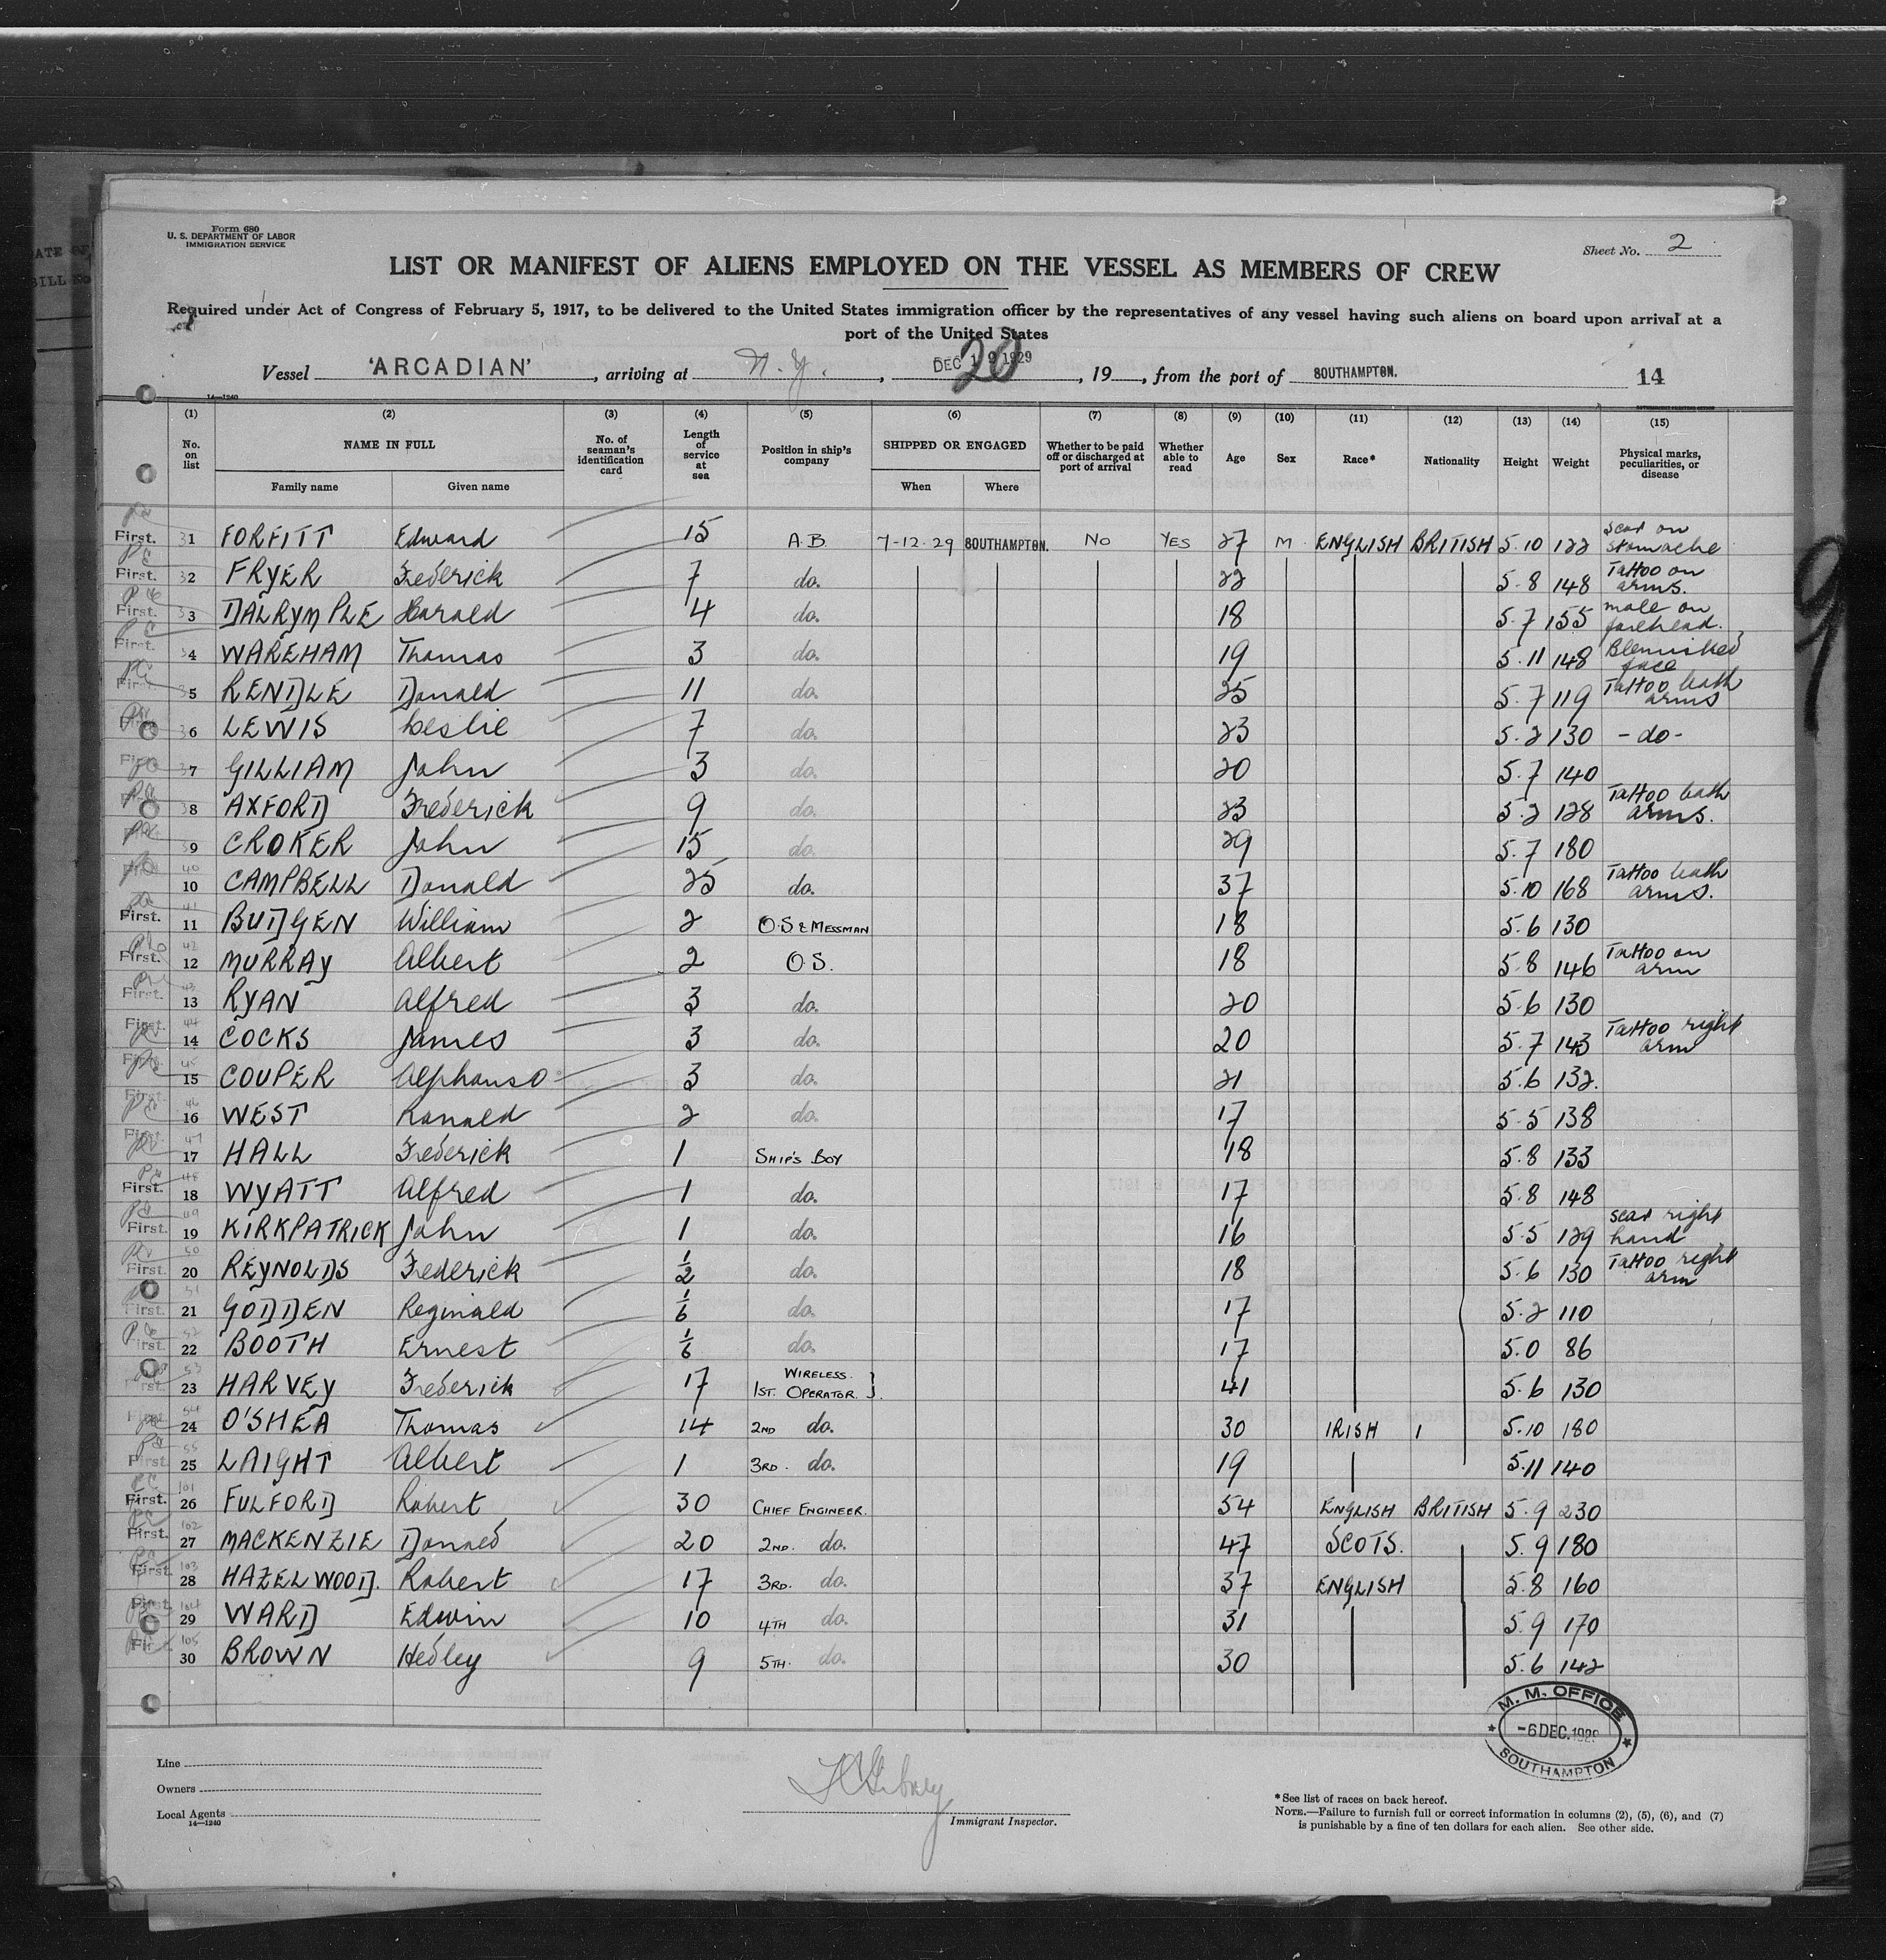 Form 680
U. S. DEPARTMENT OF LABOR
IMMIGRATION SERVICE
Sheet No. 2
LIST OR MANIFEST OF ALIENS EMPLOYED ON THE VESSEL AS MEMBERS OF CREW
Required under Act of Congress of February 5, 1917, to be delivered to the United States immigration officer by the representatives of any vessel having such aliens on board upon arrival at a
port of the United States
Vessel 'ARCADIAN', arriving at N.Y., DEC 19 1929 20, 19, from the port of SOUTHAMPTON. 14
14—1240
(1) (2) (3) (4) (5) (6) (7) (8) (9) (10) (11) (12) (13) (14) (15)
No. on list NAME IN FULL No. of seaman's identification card Length of service at sea Position in ship's company SHIPPED OR ENGAGED Whether to be paid off or discharged at port of arrival Whether able to read Age Sex Race* Nationality Height Weight Physical marks, peculiarities, or disease
Family name Given name When Where
First. 31 FORFITT Edward 15 A.B. 7-12-29 SOUTHAMPTON. NO YES 27 M ENGLISH BRITISH 5.10 122 Scar on stomache
First. 32 FRYER Frederick 7 do. 22 5.8 148 Tattoo on arms.
First. 33 DALRYMPLE Harald 4 do. 18 5.7 155 mole on forehead.
First. 34 WAREHAM Thomas 3 do. 19 5.11 148 Blemished face
First. 35 RENDLE Donald 11 do. 25 5.7 119 Tattoo both arms
36 LEWIS Leslie 7 do. 23 5.2 130 -do-
First 37 GILLIAM John 3 do. 20 5.7 140
38 AXFORD Frederick 9 do. 23 5.2 128 Tattoo both arms.
First 39 CROKER John 15 do. 29 5.7 180
First 40 10 CAMPBELL Donald 25 do. 37 5.10 168 Tattoo both arms.
First. 41 11 BUDGEN William 2 O.S & MESSMAN 18 5.6 130
First. 42 12 MURRAY Albert 2 O.S. 18 5.8 146 Tattoo on arm
First. 43 13 RYAN Alfred 3 do. 20 5.6 130
First. 44 14 COCKS James 3 do. 20 5.7 143 Tattoo right arm
First. 45 15 COUPER Alphonso 3 do. 21 5.6 132.
First. 46 16 WEST Ronald 2 do. 17 5.5 138
First. 47 17 HALL Frederick 1 SHIP'S BOY 18 5.8 133
First. 48 18 WYATT Alfred 1 do. 17 5.8 148
First. 49 19 KIRKPATRICK John 1 do. 16 5.5 129 scar right hand
First. 50 20 REYNOLDS Frederick 1/2 do. 18 5.6 130 Tattoo right arm
First. 51 21 GODDEN Reginald 1/6 do. 17 5.2 110
First. 52 22 BOOTH Ernest 1/6 do. 17 5.0 86
First. 53 23 HARVEY Frederick 17 1ST. WIRELESS OPERATOR. 41 5.6 130
First. 54 24 O'SHEA Thomas 14 2ND do. 30 IRISH 5.10 180
First. 55 25 LAIGHT Albert 1 3RD. do. 19 5.11 140
First. 101 26 FULFORD Robert 30 CHIEF ENGINEER. 54 ENGLISH BRITISH 5.9 230
First. 102 27 MACKENZIE Donald 20 2ND. do. 47 SCOTS. 5.9 180
First. 103 28 HAZELWOOD. Robert 17 3RD. do. 37 ENGLISH 5.8 160
First. 104 29 WARD Edwin 10 4TH do. 31 5.9 170
105 30 BROWN Hedley 9 5TH. do. 30 5.6 142
9
M. M. OFFICE
-6 DEC. 1929
SOUTHAMPTON
Line
Owners
Local Agents
14—1240
Immigrant Inspector.
*See list of races on back hereof.
NOTE.—Failure to furnish full or correct information in columns (2), (5), (6), and (7)
is punishable by a fine of ten dollars for each alien. See other side.